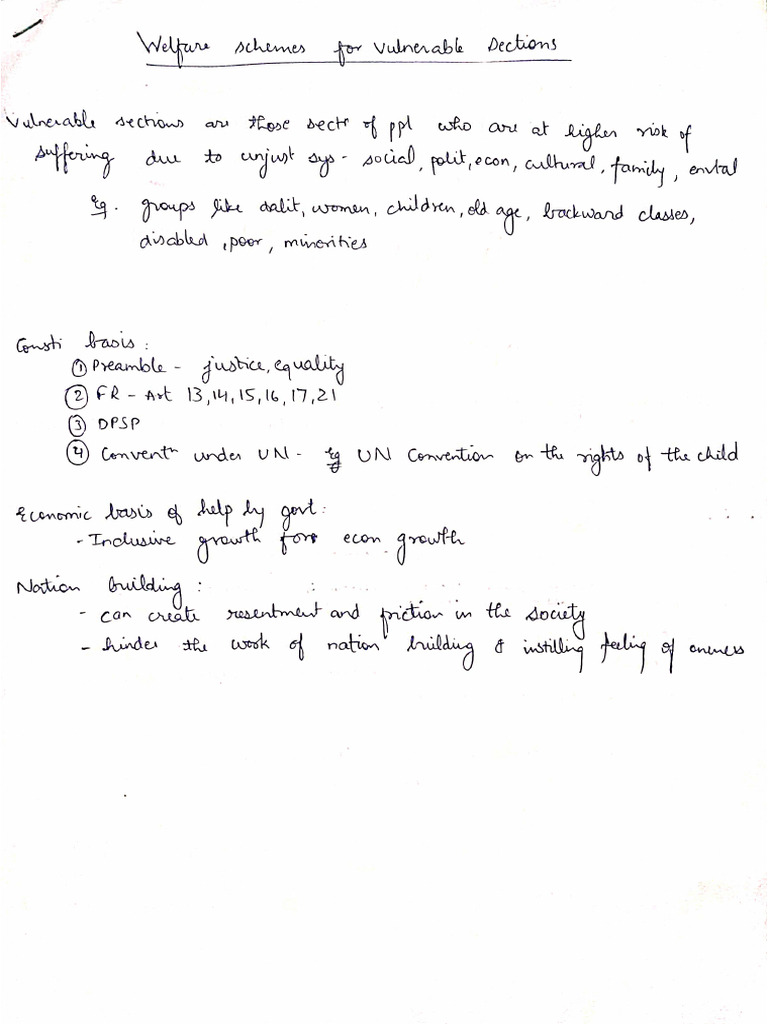 Welfare schemes for vulnerable sections
Vulnerable sections are those sectn of ppl who are at higher risk of
suffering due to unjust sys - social, polit, econ, cultural, family, envtal
Eg. groups like dalit, women, children, old age, backward classes,
disabled, poor, minorities
Consti basis:
① Preamble - justice, equality
② FR - Art 13,14,15,16,17,21
③ DPSP
④ Conventn under UN - eg UN Convention on the rights of the child
Economic basis of help by govt:
- Inclusive growth for econ growth
Nation building:
- can create resentment and friction in the society
- hinder the work of nation building & instilling feeling of oneness